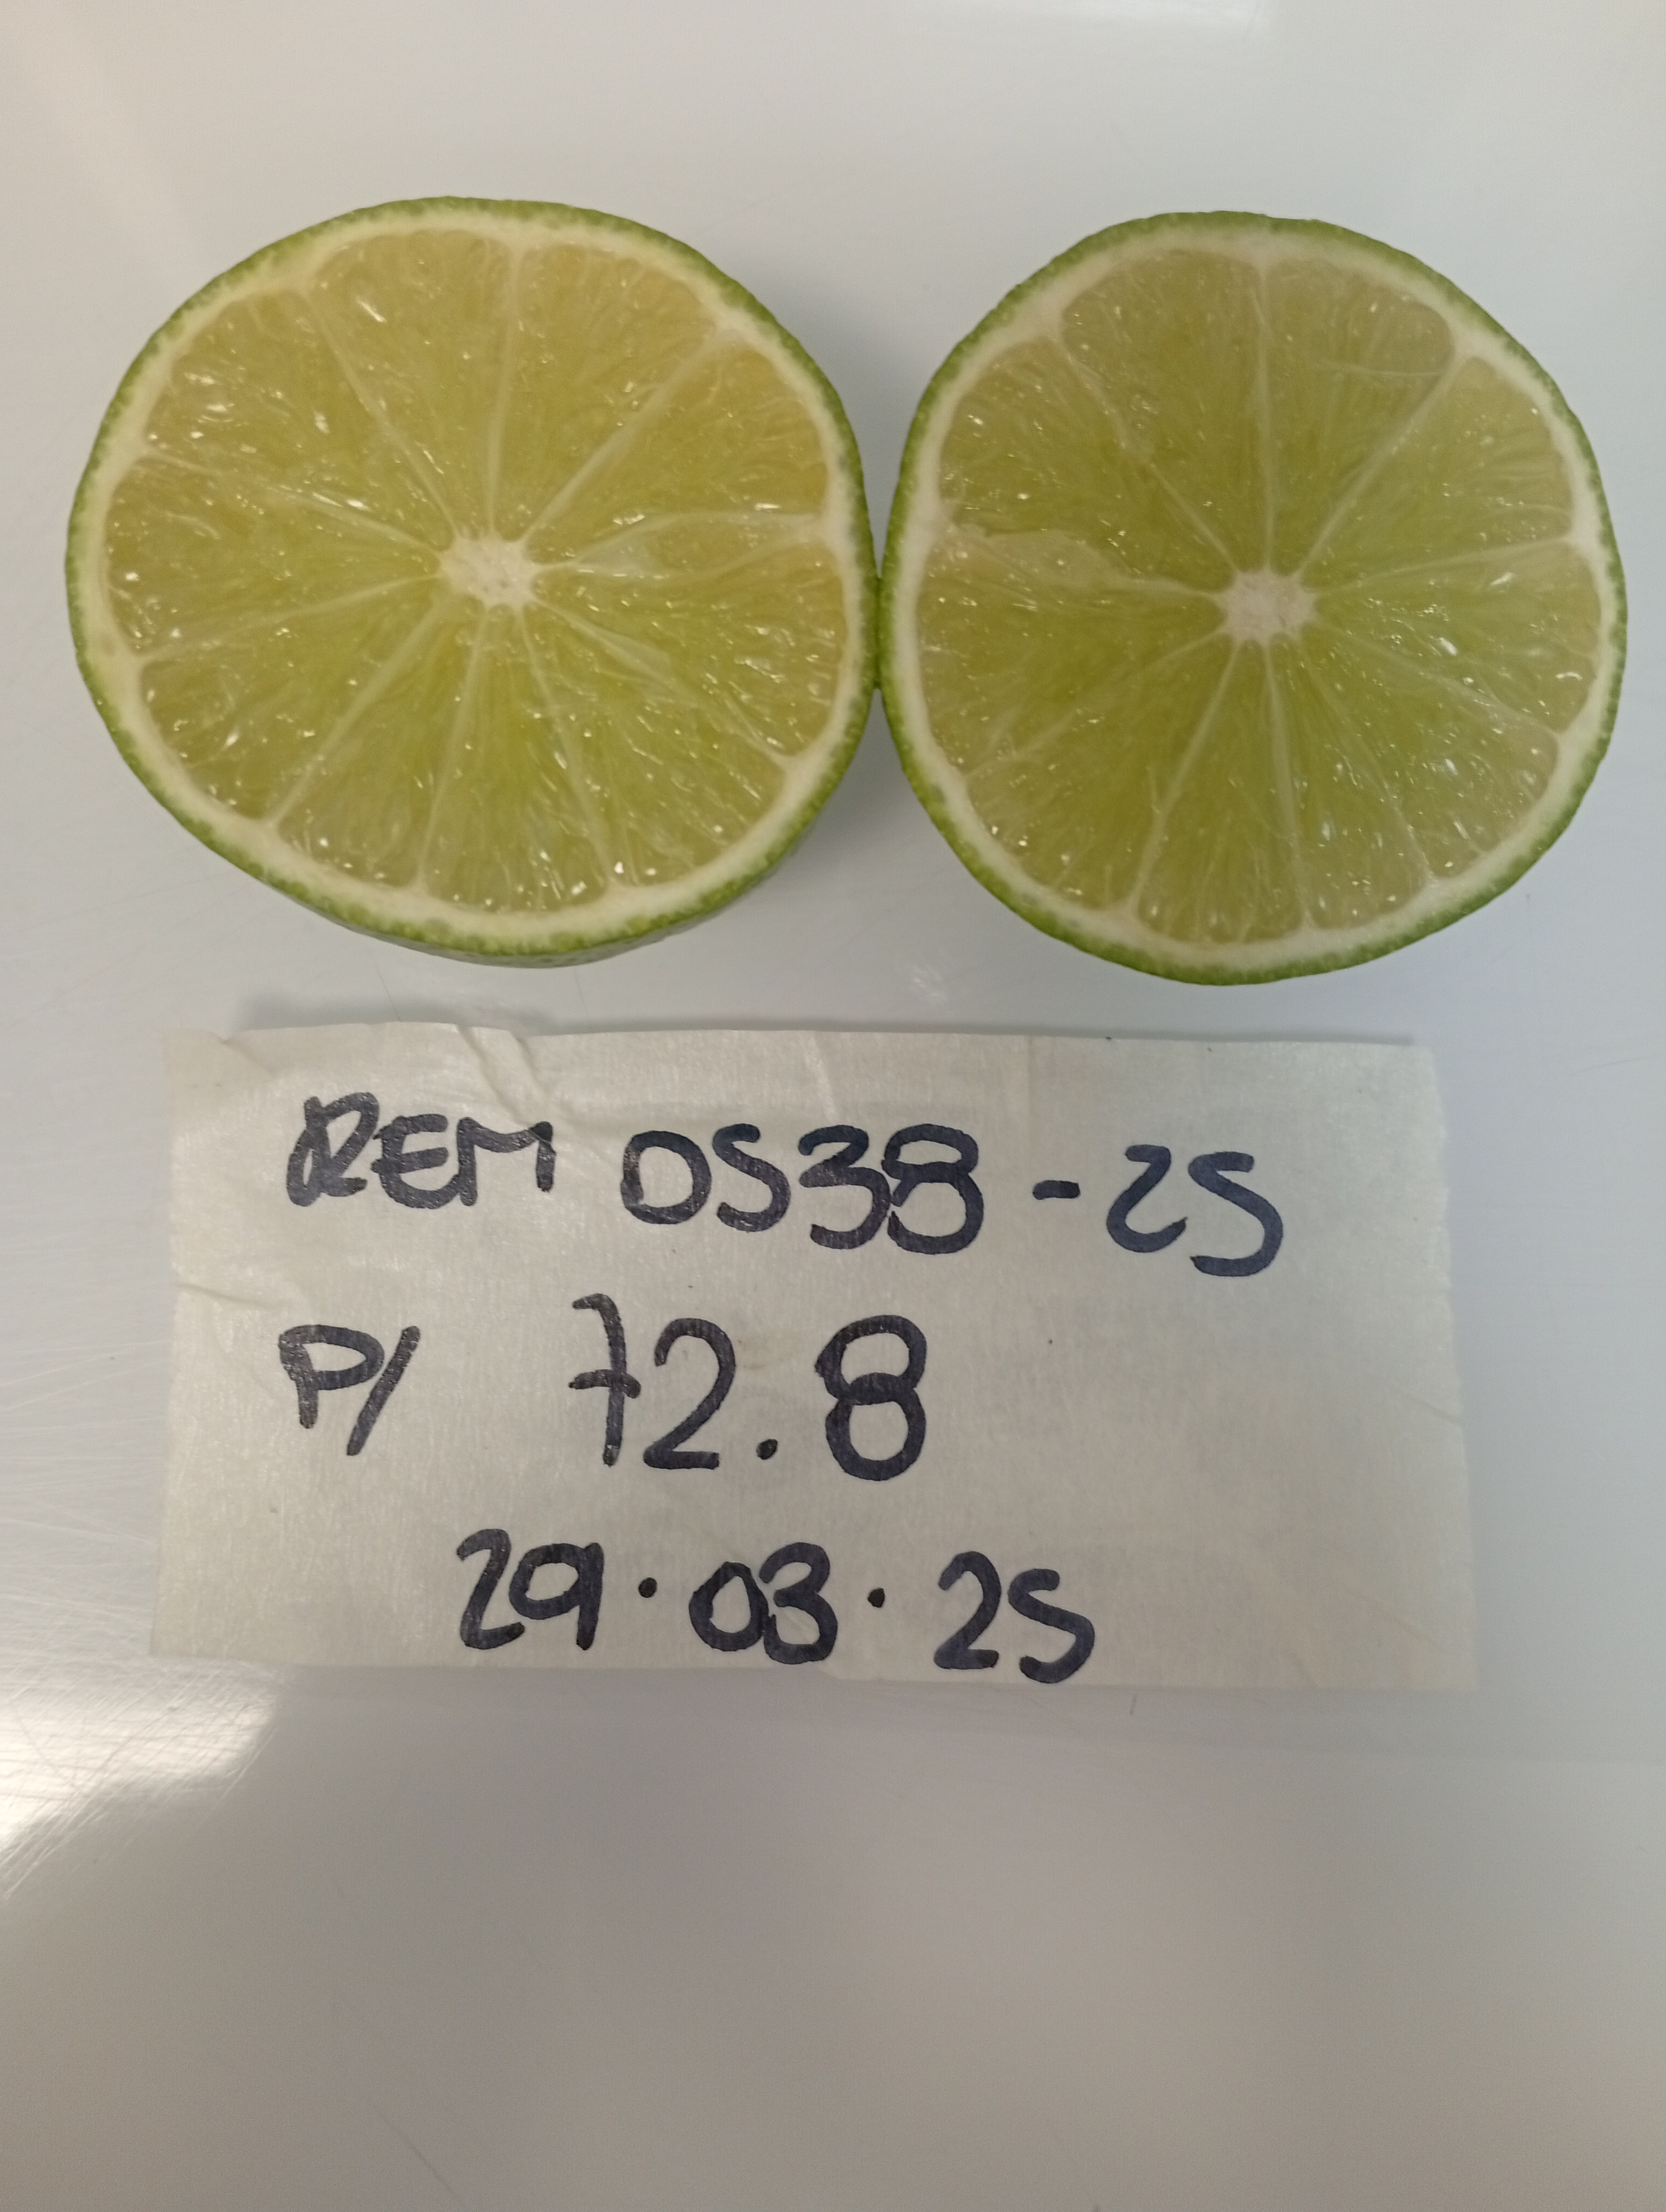 REM 0538-25
P/ 72.8
29.03.25